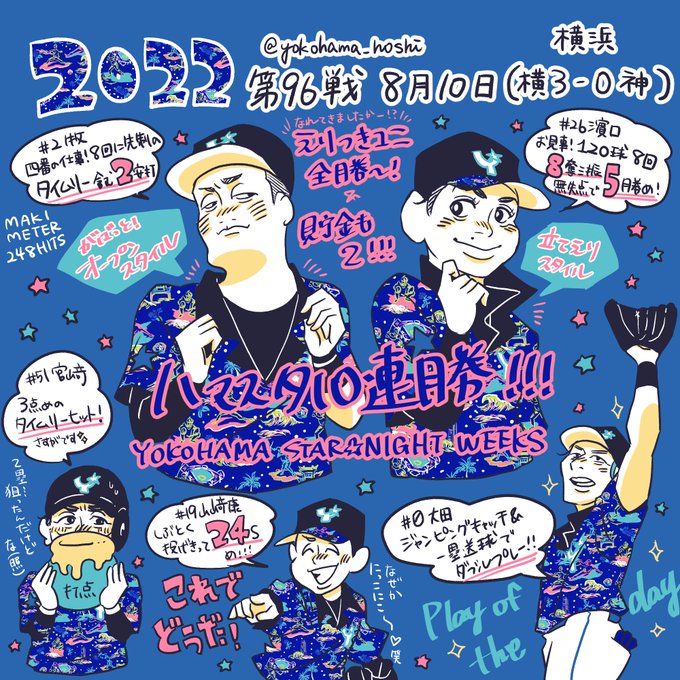 @yokohama_hoshi
横浜
2022
第96戦 8月10日(横3-0神)
#2牧
四番の仕事!8回に先制の
タイムリー含む2安打
MAKI
METER
248HITS
がばっと!
オープン
スタイル
なれてきましたかー!?
えりつきユニ
全勝〜!
貯金も
2!!!
#26濱口
お見事!120球8回
8奪三振
無失点で5勝め!
立てえり
スタイル
ハマスタ10連勝!!!
YOKOHAMA STAR☆NIGHT WEEKS
#51宮﨑
3点めの
タイムリーヒット!
さすがです
2塁…
狙ったんだけど
な(照)
打点
#19山﨑康
しぶとく
投げきって24S
め!!!
これで
どうだ!
なぜか
にこにこ〜♡笑
#0大田
ジャンピングキャッチ&
塁送球で
ダブルプレー!!
Play of
the day